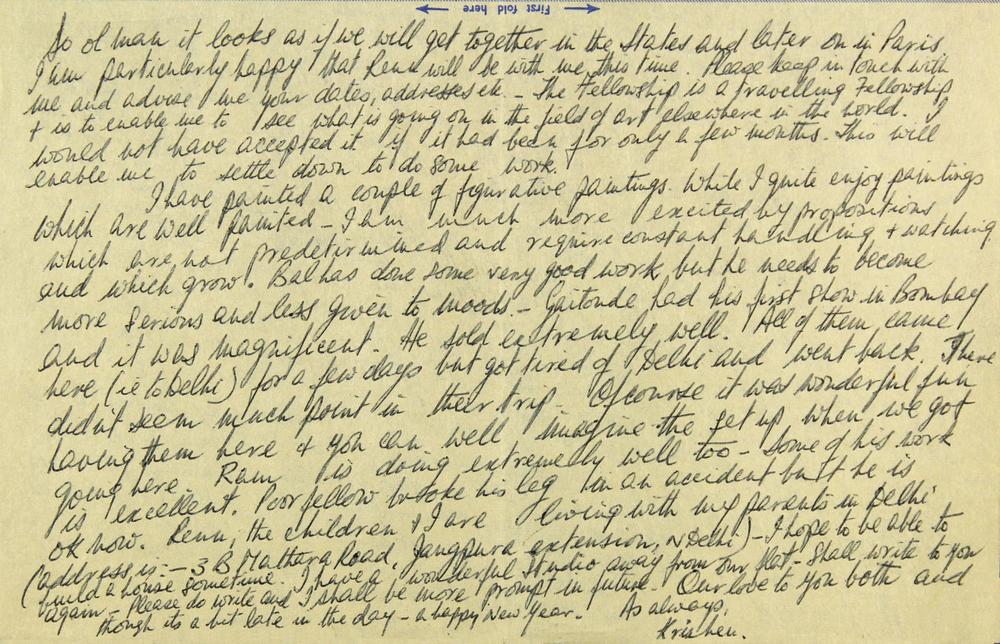 First fold here
So ol man it looks as if we will get together in the States and later on in Paris
I am particularly happy that Renu will be with me this time. Please keep in touch with
me and advise me your dates, addresses etc. - The Fellowship is a travelling Fellowship
+ is to enable me to see what is going on in the field of art elsewhere in the world. I
would not have accepted it if it had been for only a few months. This will
enable me to settle down to do some work.
I have painted a couple of figurative paintings. While I quite enjoy paintings
which are well painted - I am much more excited by propositions
which are not predetermined and require constant handling + watching
and which grow. Bal has done some very good work, but he needs to become
more serious and less given to moods. - Gaitonde had his first show in Bombay
and it was magnificent. He sold extremely well. All of them came
here (ie to Delhi) for a few days but got tired of Delhi and went back. There
didn't seem much point in their trip. Of course it was wonderful fun
having them here & you can well imagine the set up when we got
going here. Ram is doing extremely well too - some of his work
is excellent. Poor fellow broke his leg in an accident but he is
ok now. Renu, the children & I are living with my parents in Delhi
(address is: - 3 B Mathura Road, Jangpura extension, N Delhi) - I hope to be able to
build a house sometime. I have a wonderful studio away from our flat - shall write to you
again - Please do write and I shall be more prompt in future. Our love to you both and
though its a bit late in the day - a happy New Year. As always,
Krishen.